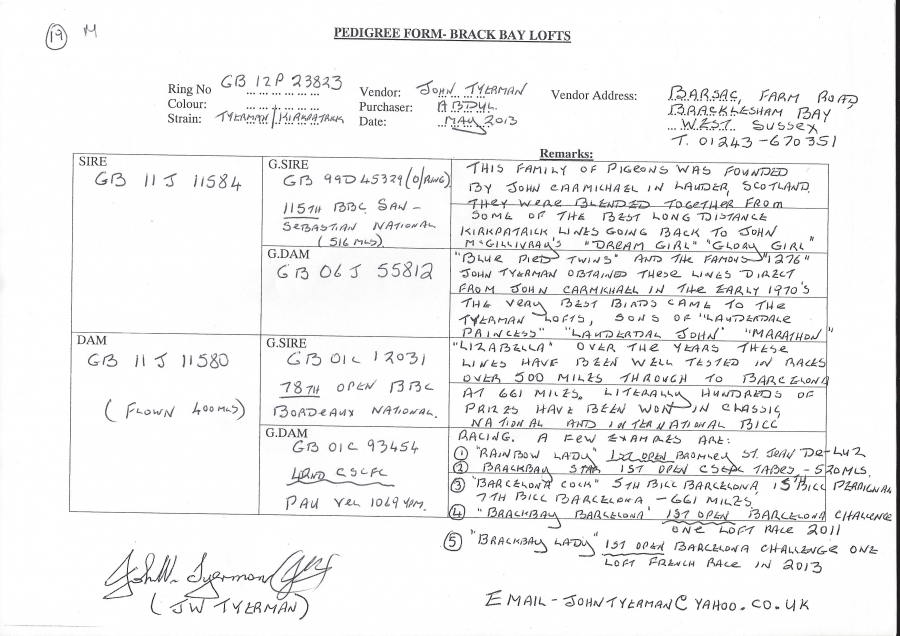 19 M
PEDIGREE FORM- BRACK BAY LOFTS
Ring No GB 12P 23823
Colour:
Strain: TYERMAN/KIRKPATRICK
Vendor: JOHN TYERMAN
Purchaser: ABDUL.
Date: MAY 2013
Vendor Address: BARSAC, FARM ROAD
BRACKLESHAM BAY
WEST SUSSEX
T. 01243-670351
SIRE
GB 11 J 11584
G.SIRE
GB 99D45329 (O/RING)
115TH BBC SAN-
SEBASTIAN NATIONAL
(516 MLS)
G.DAM
GB 06 J 55812
DAM
GB 11 J 11580
(FLOWN 400MLS)
G.SIRE
GB 01C 12031
78TH OPEN BBC
BORDEAUX NATIONAL.
G.DAM
GB 01C 93454
CSCFC
PAU VEL 1069 YPM.
Remarks:
THIS FAMILY OF PIGEONS WAS FOUNDED
BY JOHN CARMICHAEL IN LAUDER, SCOTLAND.
THEY WERE BLENDED TOGETHER FROM
SOME OF THE BEST LONG DISTANCE
KIRKPATRICK LINES GOING BACK TO JOHN
McGILLIVRAY'S "DREAM GIRL" "GLORY GIRL"
"BLUE PIED TWINS" AND THE FAMOUS "1276"
JOHN TYERMAN OBTAINED THESE LINES DIRECT
FROM JOHN CARMICHAEL IN THE EARLY 1970'S
THE VERY BEST BIRDS CAME TO THE
TYERMAN LOFTS, SONS OF "LAUDERDALE
PRINCESS" "LAUDERDAL JOHN" "MARATHON"
"LIZABELLA" OVER THE YEARS THESE
LINES HAVE BEEN WELL TESTED IN RACES
OVER 500 MILES THROUGH TO BARCELONA
AT 661 MILES. LITERALLY HUNDREDS OF
PRIZES HAVE BEEN WON IN CLASSIC
NATIONAL AND INTERNATIONAL BICC
RACING. A FEW EXAMPLES ARE:
1 "RAINBOW LADY" 1ST OPEN BROMLEY ST. JEAN DE-LUZ
2 BRACKBAY STAR 1ST OPEN CSCFC TARBES - 520MLS.
3 "BARCELONA COCK" 5TH BICC BARCELONA 15TH BICC PERPIGNAN
7TH BICC BARCELONA - 661 MILES.
4 "BRACKBAY BARCELONA" 1ST OPEN BARCELONA CHALLENGE
ONE LOFT RACE 2011
5 "BRACKBAY LADY" 1ST OPEN BARCELONA CHALLENGE ONE
LOFT FRENCH RACE IN 2013
John W. Tyerman
(JW TYERMAN)
EMAIL - JOHNTYERMAN@YAHOO.CO.UK